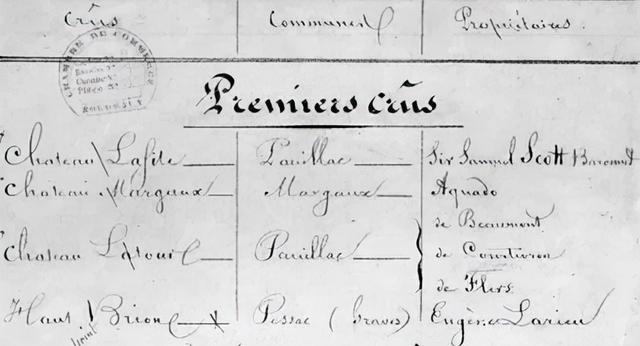 Crûs Communes Propriétaires.
CHAMBRE DE COMMERCE
BORDEAUX
Premiers crûs
Chateau Lafite Pauillac Sir Samuel Scott
Chateau Margaux Margaux Aguado
de Beaumont
Chateau Latour Pauillac de Courtivron
de Flers
Haut Brion Pessac (Graves) Eugène Larieu